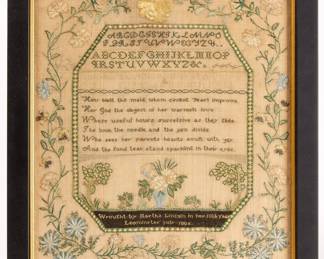 ABCDEFGHIJKLMNO
PQRSTUVWXYZ
ABCDEFGHIJKLMNOP
QRSTUVWXYZ&c.
How blest the maid whom circling years improve
Her God the object of her warmest love
Whose useful hours successive as they glide
The book the needle and the pen divide
Who sees her parents hearts exult with joy
And the fond tear stand sparkling in their eyes.
Wrought by Martha Lincoln in her Year
Leominster July